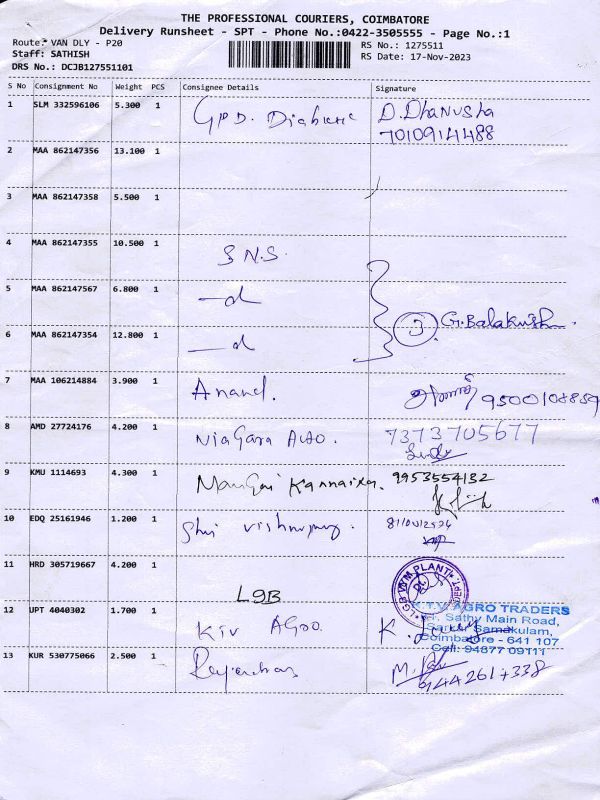 THE PROFESSIONAL COURIERS, COIMBATORE
Delivery Runsheet - SPT - Phone No.:0422-3505555 - Page No.:1
Route: VAN DLY - P20
Staff: SATHISH
DRS No.: DCJB127551101
RS No.: 1275511
RS Date: 17-Nov-2023
S No Consignment No Weight PCS Consignee Details Signature
1 SLM 332596106 5.300 1 GPD. Diabetic D. Dhanusha
7010914488
2 MAA 862147356 13.100 1
3 MAA 862147358 5.500 1
4 MAA 862147355 10.500 1 SNS
5 MAA 862147567 6.800 1 —d
3 G.Balakrish
6 MAA 862147354 12.800 1 —d
7 MAA 106214884 3.900 1 Anand. 9500108859
8 AMD 27724176 4.200 1 NiaGara Auto. 7373705677
9 KMU 1114693 4.300 1 Mangai 9953554132
10 EDQ 25161946 1.200 1 Shri
11 HRD 305719667 4.200 1 LGB
PLANT
12 UPT 4040302 1.700 1 Kiv Agro. K.
K.T.V. AGRO TRADERS
Sathy Main Road,
Sarkar Samakulam,
Coimbatore - 641 107
Cell: 94877 09111
13 KUR 530775066 2.500 1 M.